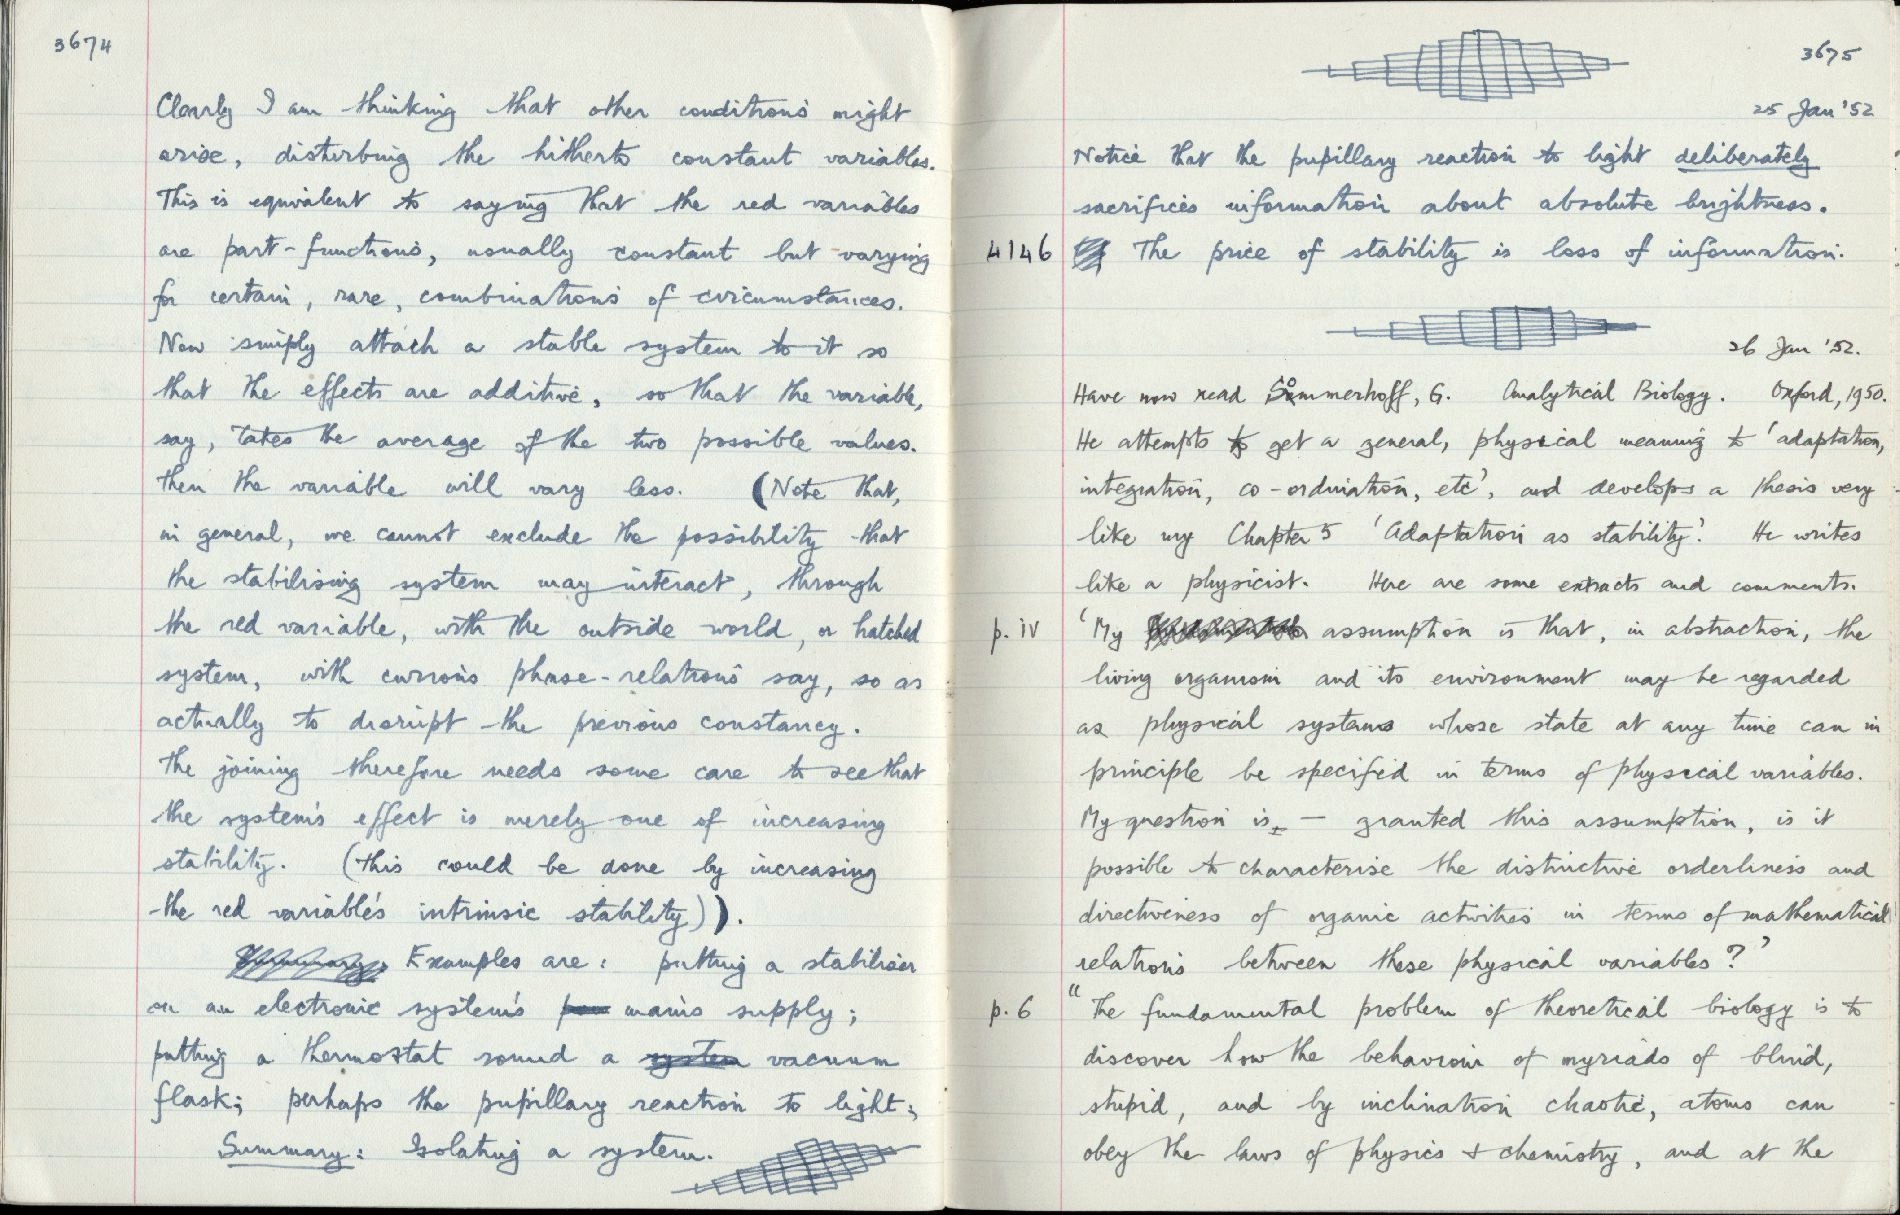 3674
Clearly I am thinking that other conditions might
arise, disturbing the hitherto constant variables.
This is equivalent to saying that the red variables
are part-functions, usually constant but varying
for certain, rare, combinations of circumstances.
Now simply attach a stable system to it so
that the effects are additive, so that the variable,
say, takes the average of the two possible values.
Then the variable will vary less. (Note that,
in general, we cannot exclude the possibility that
the stabilising system may interact, through
the red variable, with the outside world, or hatched
system, with curious phase-relations say, so as
actually to disrupt the previous constancy.
The joining therefore needs some care to see that
the system's effect is merely one of increasing
stability. (This could be done by increasing
the red variable's intrinsic stability)).
Summary: Examples are: putting a stabiliser
on an electronic system's mains supply;
putting a thermostat round a system vacuum
flask; perhaps the pupillary reaction to light;
Summary: Isolating a system.
3675
25 Jan '52
Notice that the pupillary reaction to light deliberately
sacrifices information about absolute brightness.
4146 The price of stability is loss of information.
26 Jan '52.
Have now read Sommerhoff, G. Analytical Biology. Oxford, 1950.
He attempts to get a general, physical meaning to 'adaptation,
integration, co-ordination, etc', and develops a thesis very
like my Chapter 5 'Adaptation as stability'. He writes
like a physicist. Here are some extracts and comments.
p. iv 'My assumption is that, in abstraction, the
living organism and its environment may be regarded
as physical systems whose state at any time can in
principle be specified in terms of physical variables.
My question is, – granted this assumption, is it
possible to characterise the distinctive orderliness and
directiveness of organic activities in terms of mathematical
relations between these physical variables?'
p. 6 "The fundamental problem of theoretical biology is to
discover how the behaviour of myriads of blind,
stupid, and by inclination chaotic, atoms can
obey the laws of physics + chemistry, and at the